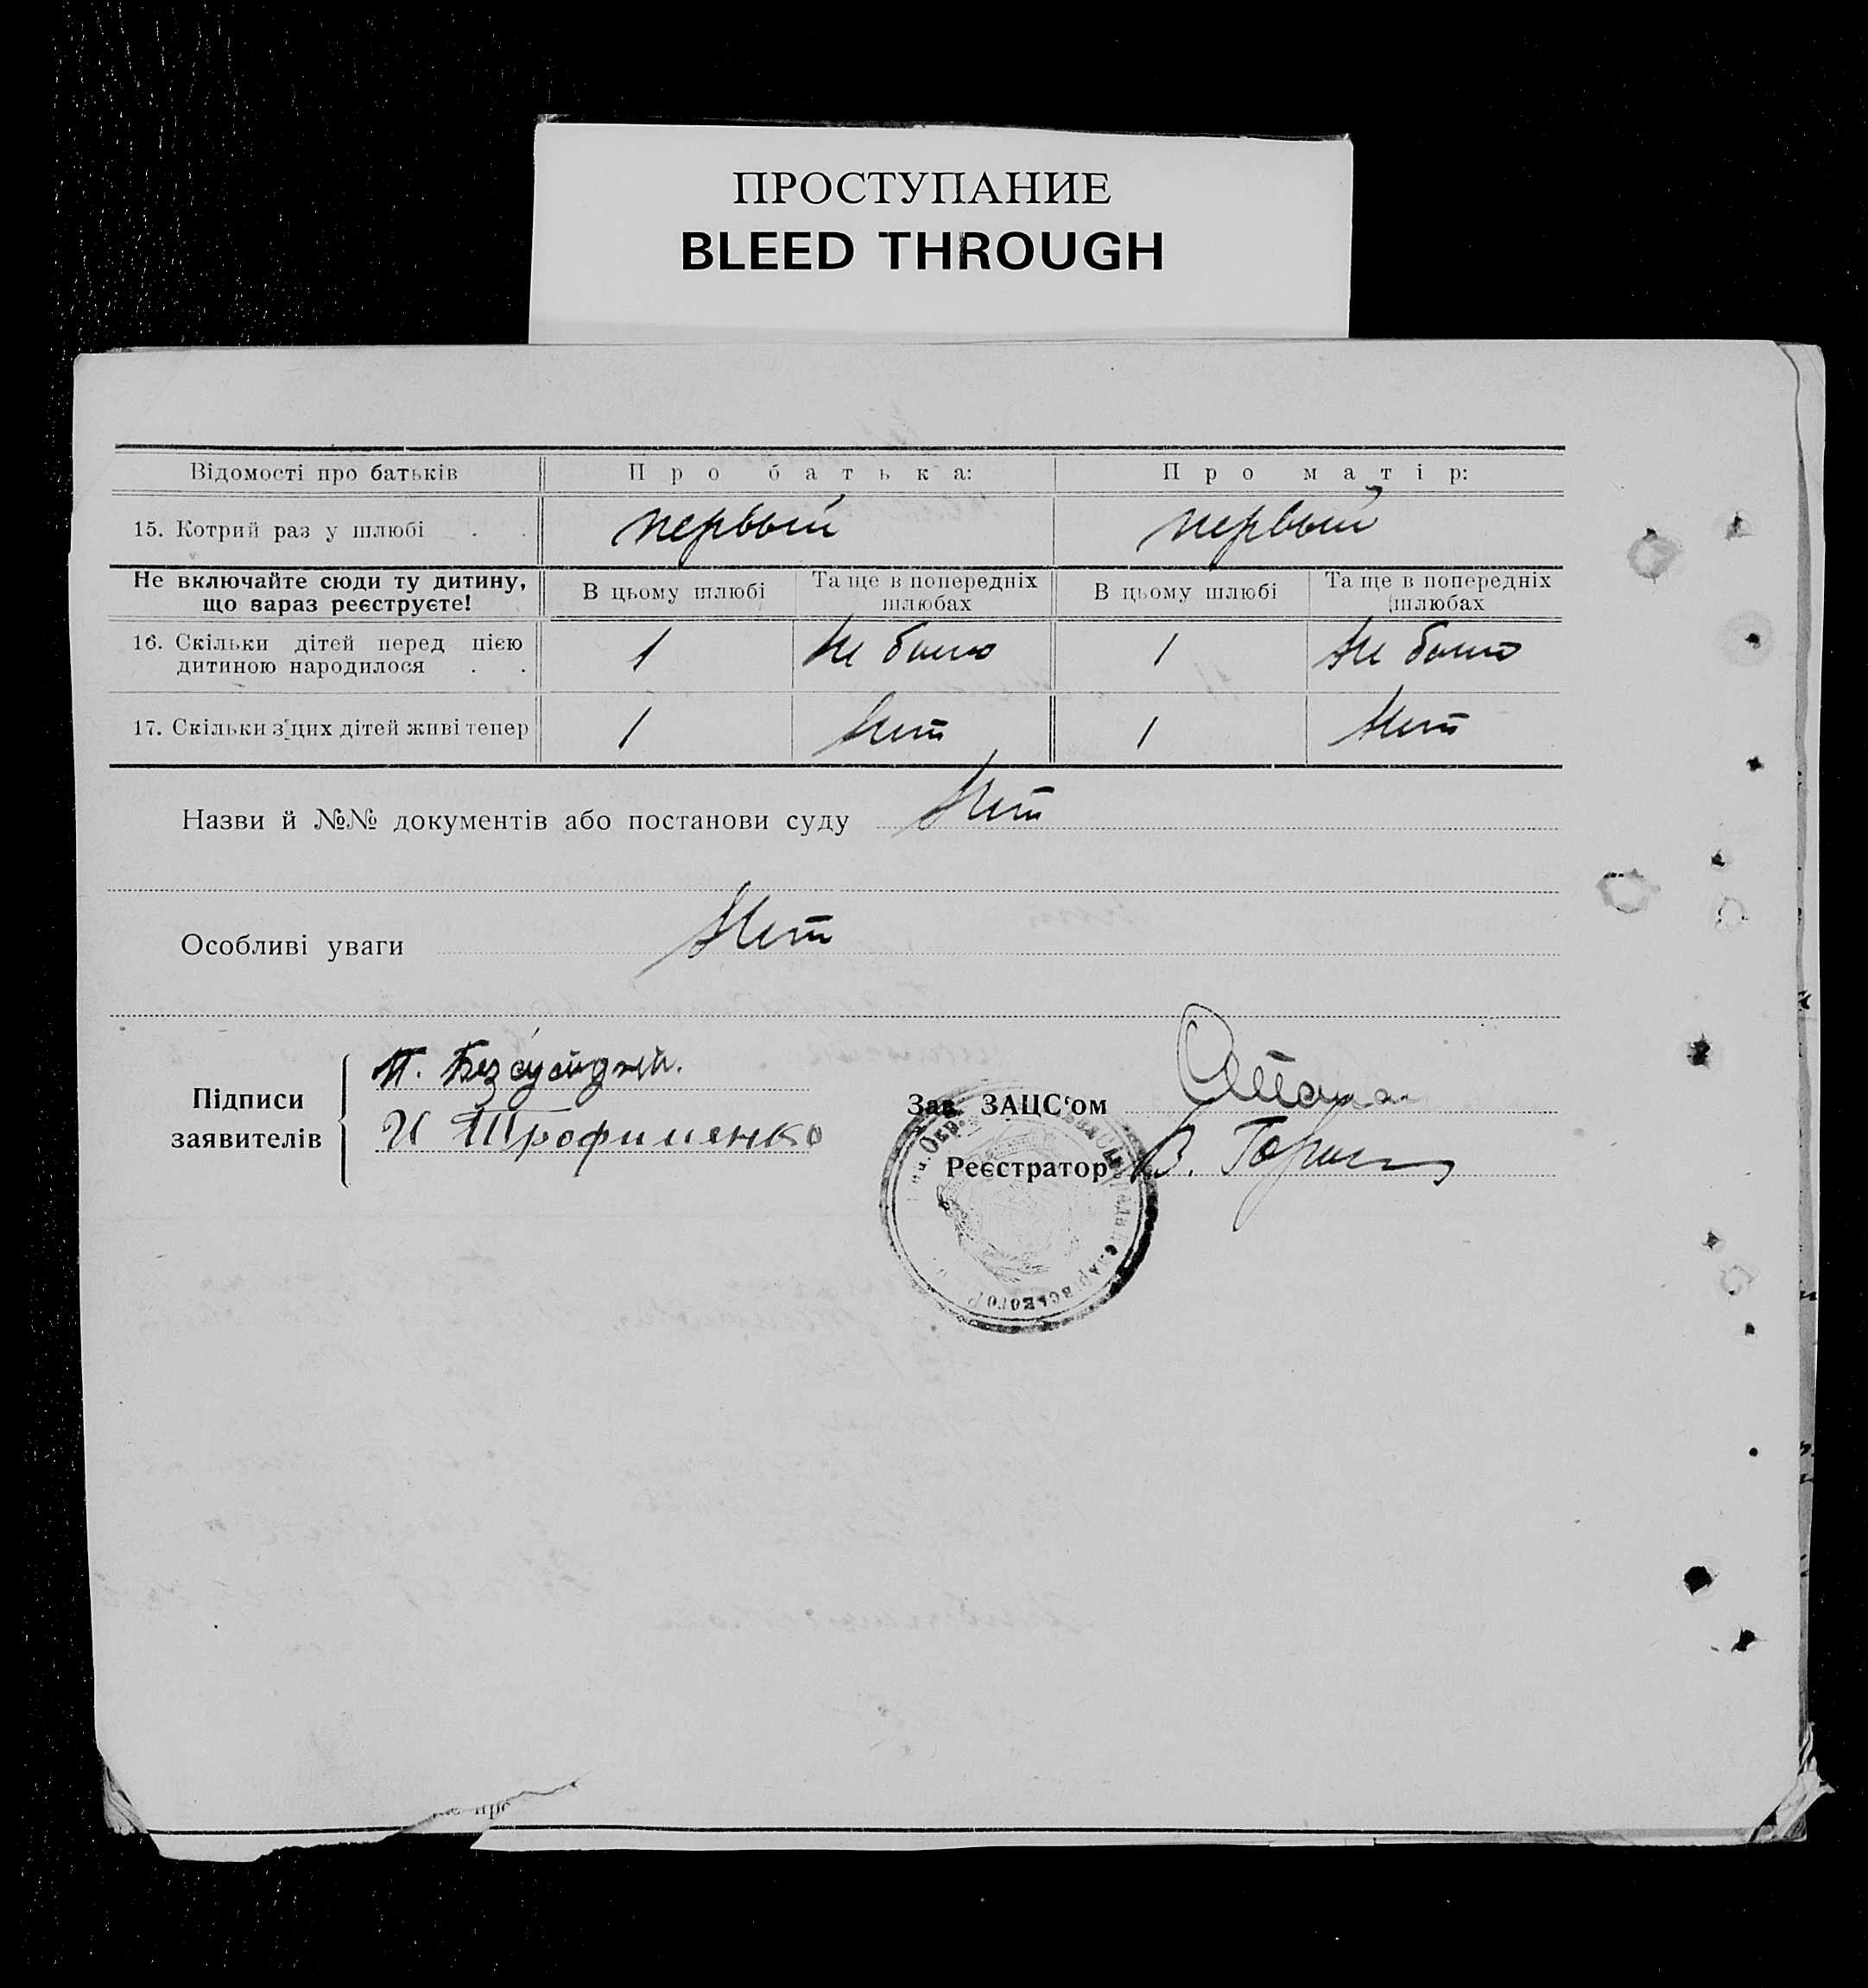 ПРОСТУПАНИЕ
BLEED THROUGH
Відомості про батьків Про батька: Про матір:
15. Котрий раз у шлюбі . . первый первый
Не включайте сюди ту дитину, що вараз реєструєте! В цьому шлюбі Та ще в попередніх шлюбах В цьому шлюбі Та ще в попередніх шлюбах
16. Скільки дітей перед цією дитиною народилося . . 1 Не было 1 Не было
17. Скільки з цих дітей живі тепер 1 Нет 1 Нет
Назви й №№ документів або постанови суду Нет
Особливі уваги Нет
Підписи заявителів
П.
И Трофименко
Зав. ЗАЦС'ом
Реєстратор В.